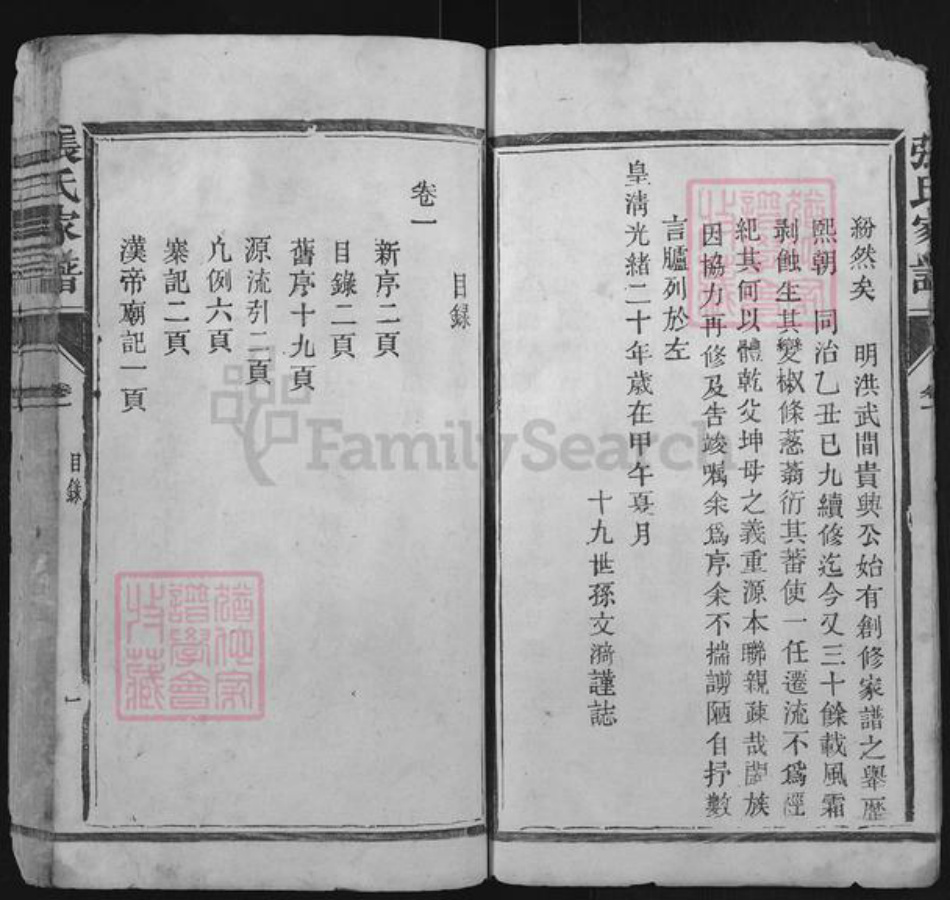 紛然矣 明洪武間貴興公始有創修家譜之舉歷
熙朝 同治乙丑已九續修迄今又三十餘載風霜
剥蝕生其變椒條蔥蓊衍其蕃使一任遷流不爲經
紀其何以體乾父坤母之義重源本聯親疎哉闔族
因協力再修及告竣囑余爲序余不揣譾陋自抒數
言臚列於左
皇清光緒二十年歲在甲午夏月
十九世孫文漪謹誌
張氏家譜
卷一
目錄
卷一
新序二頁
目錄二頁
舊序十九頁
源流引二頁
凡例六頁
寨記二頁
漢帝廟記一頁
張氏家譜
卷一
目錄
一
譜學會
收藏
FamilySearch